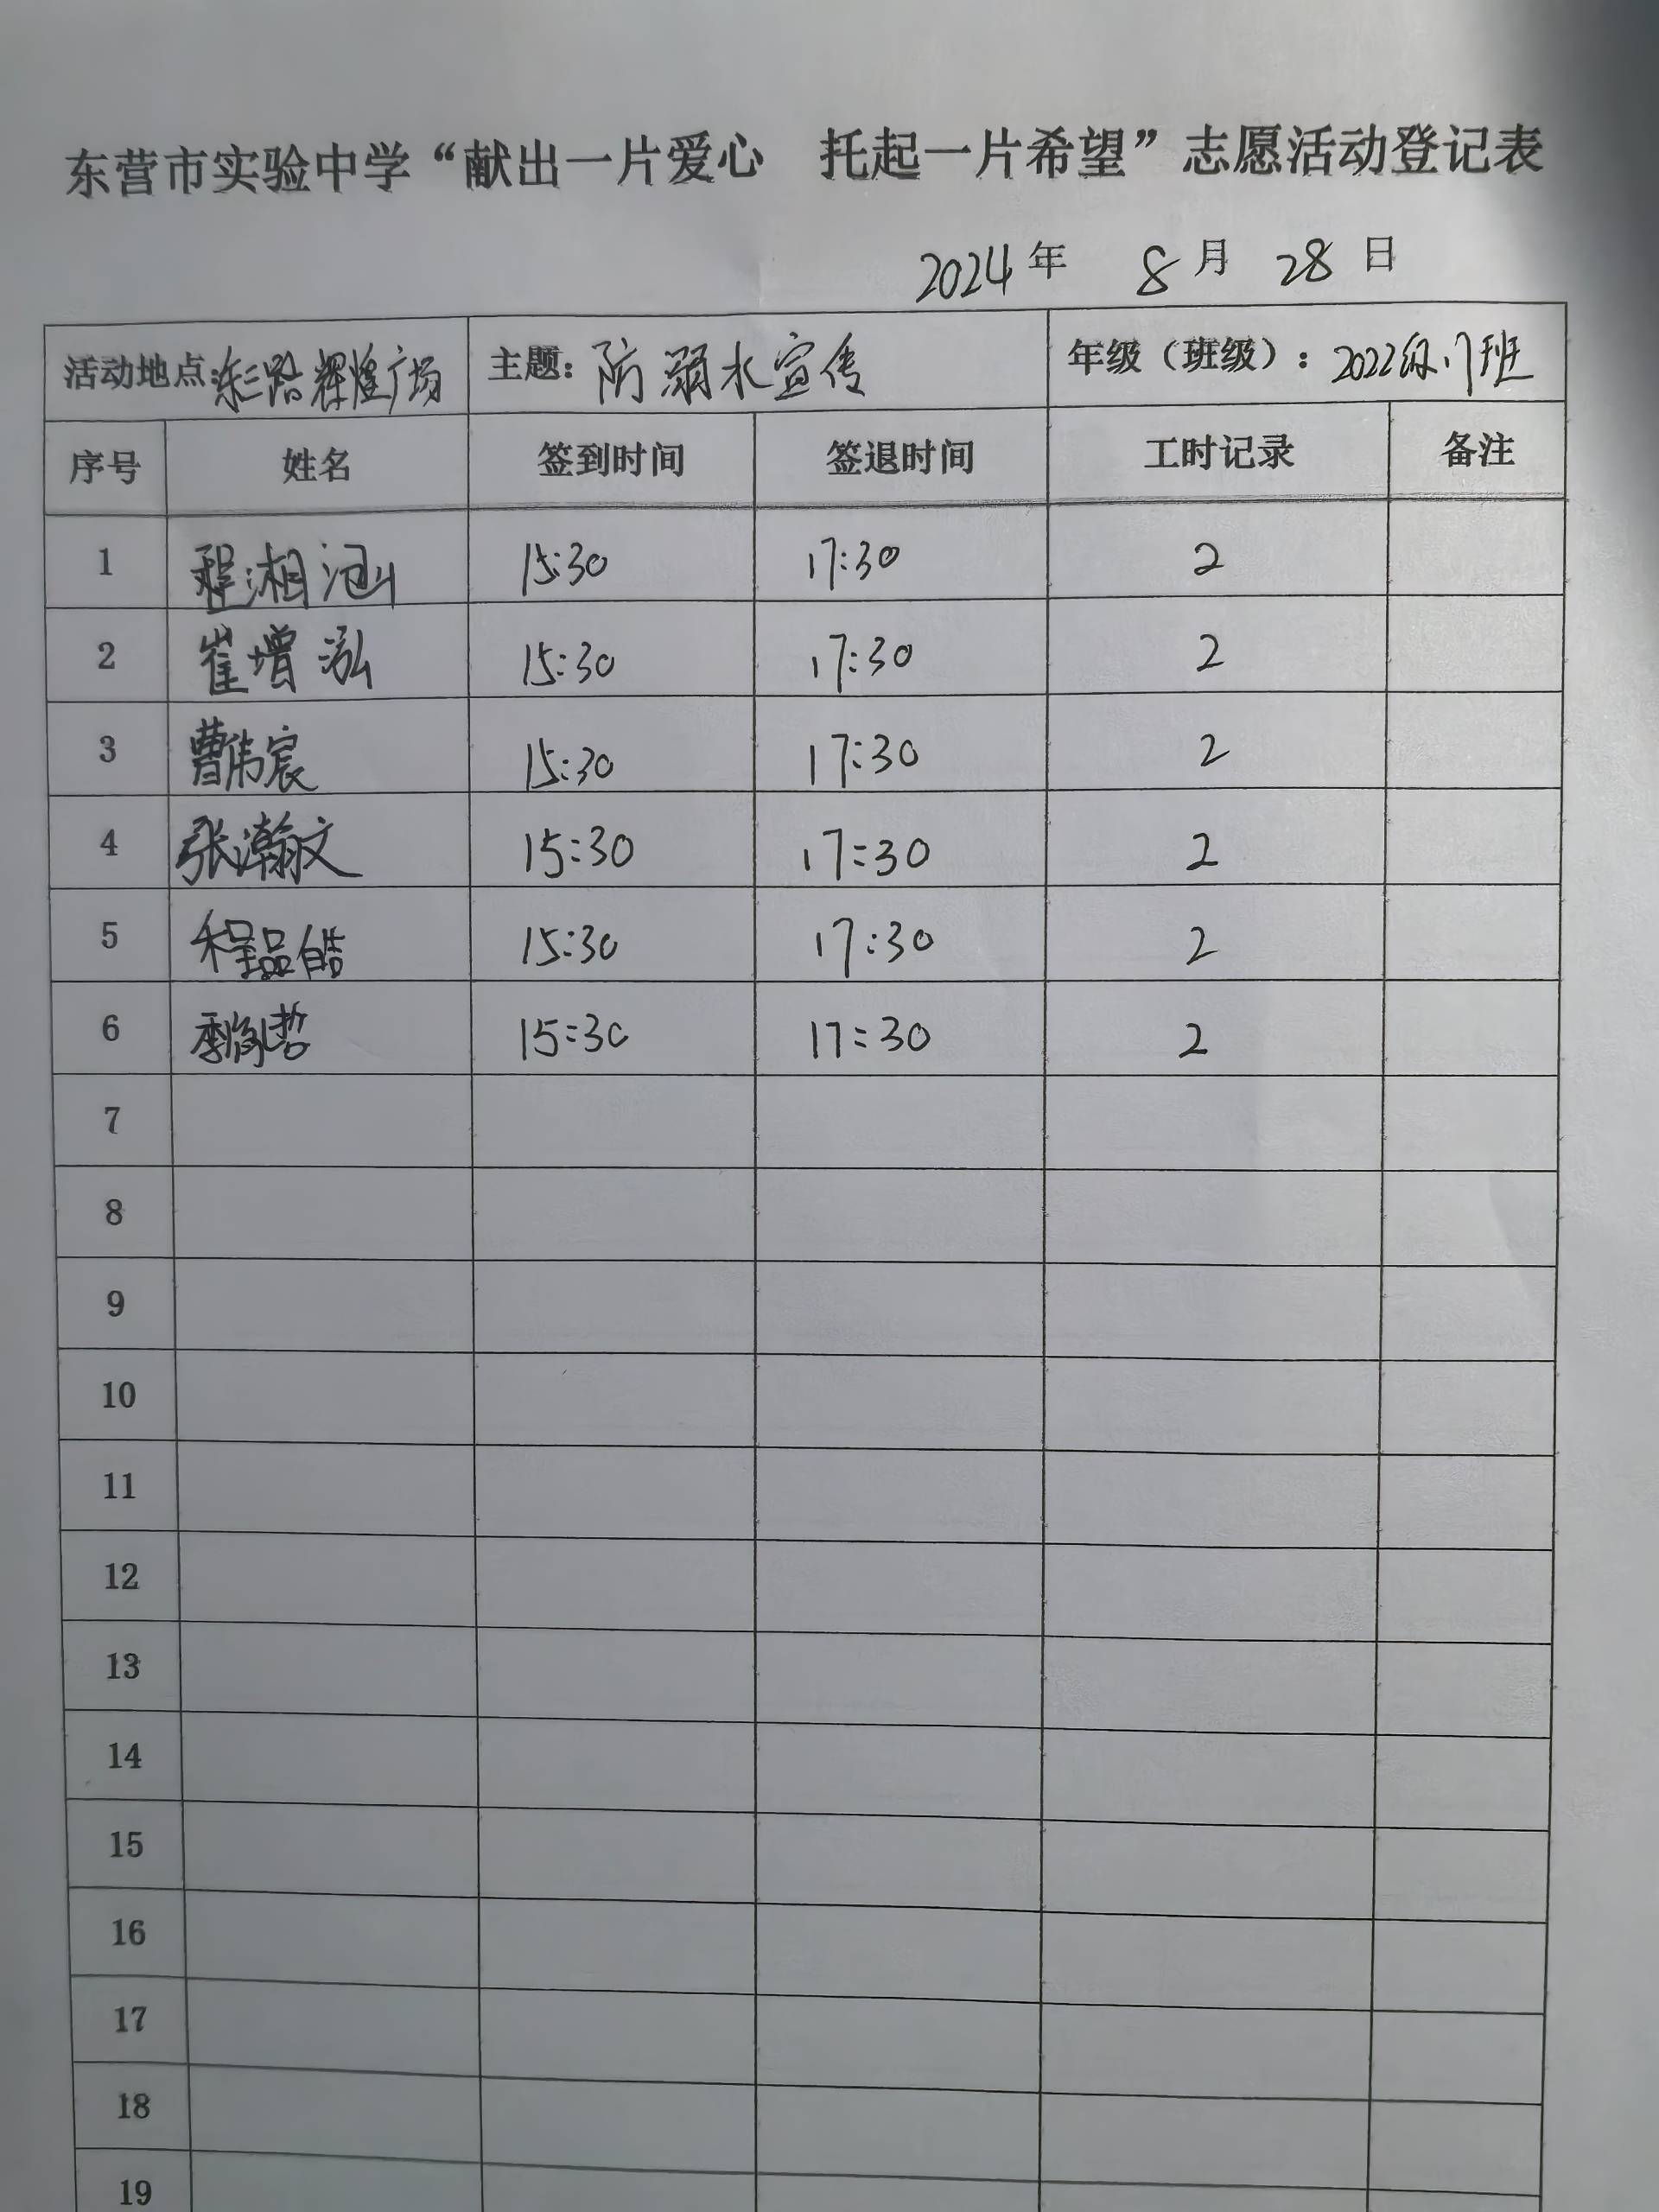 东营市实验中学“献出一片爱心 托起一片希望”志愿活动登记表
2024年 8月 28日
活动地点:东三路辉煌广场 主题:防溺水宣传 年级(班级):2022级17班
序号 姓名 签到时间 签退时间 工时记录 备注
1 程湘涵 15:30 17:30 2
2 崔增泓 15:30 17:30 2
3 曹伟宸 15:30 17:30 2
4 张瀚文 15:30 17:30 2
5 程品皓 15:30 17:30 2
6 季 哲 15:30 17:30 2
7
8
9
10
11
12
13
14
15
16
17
18
19